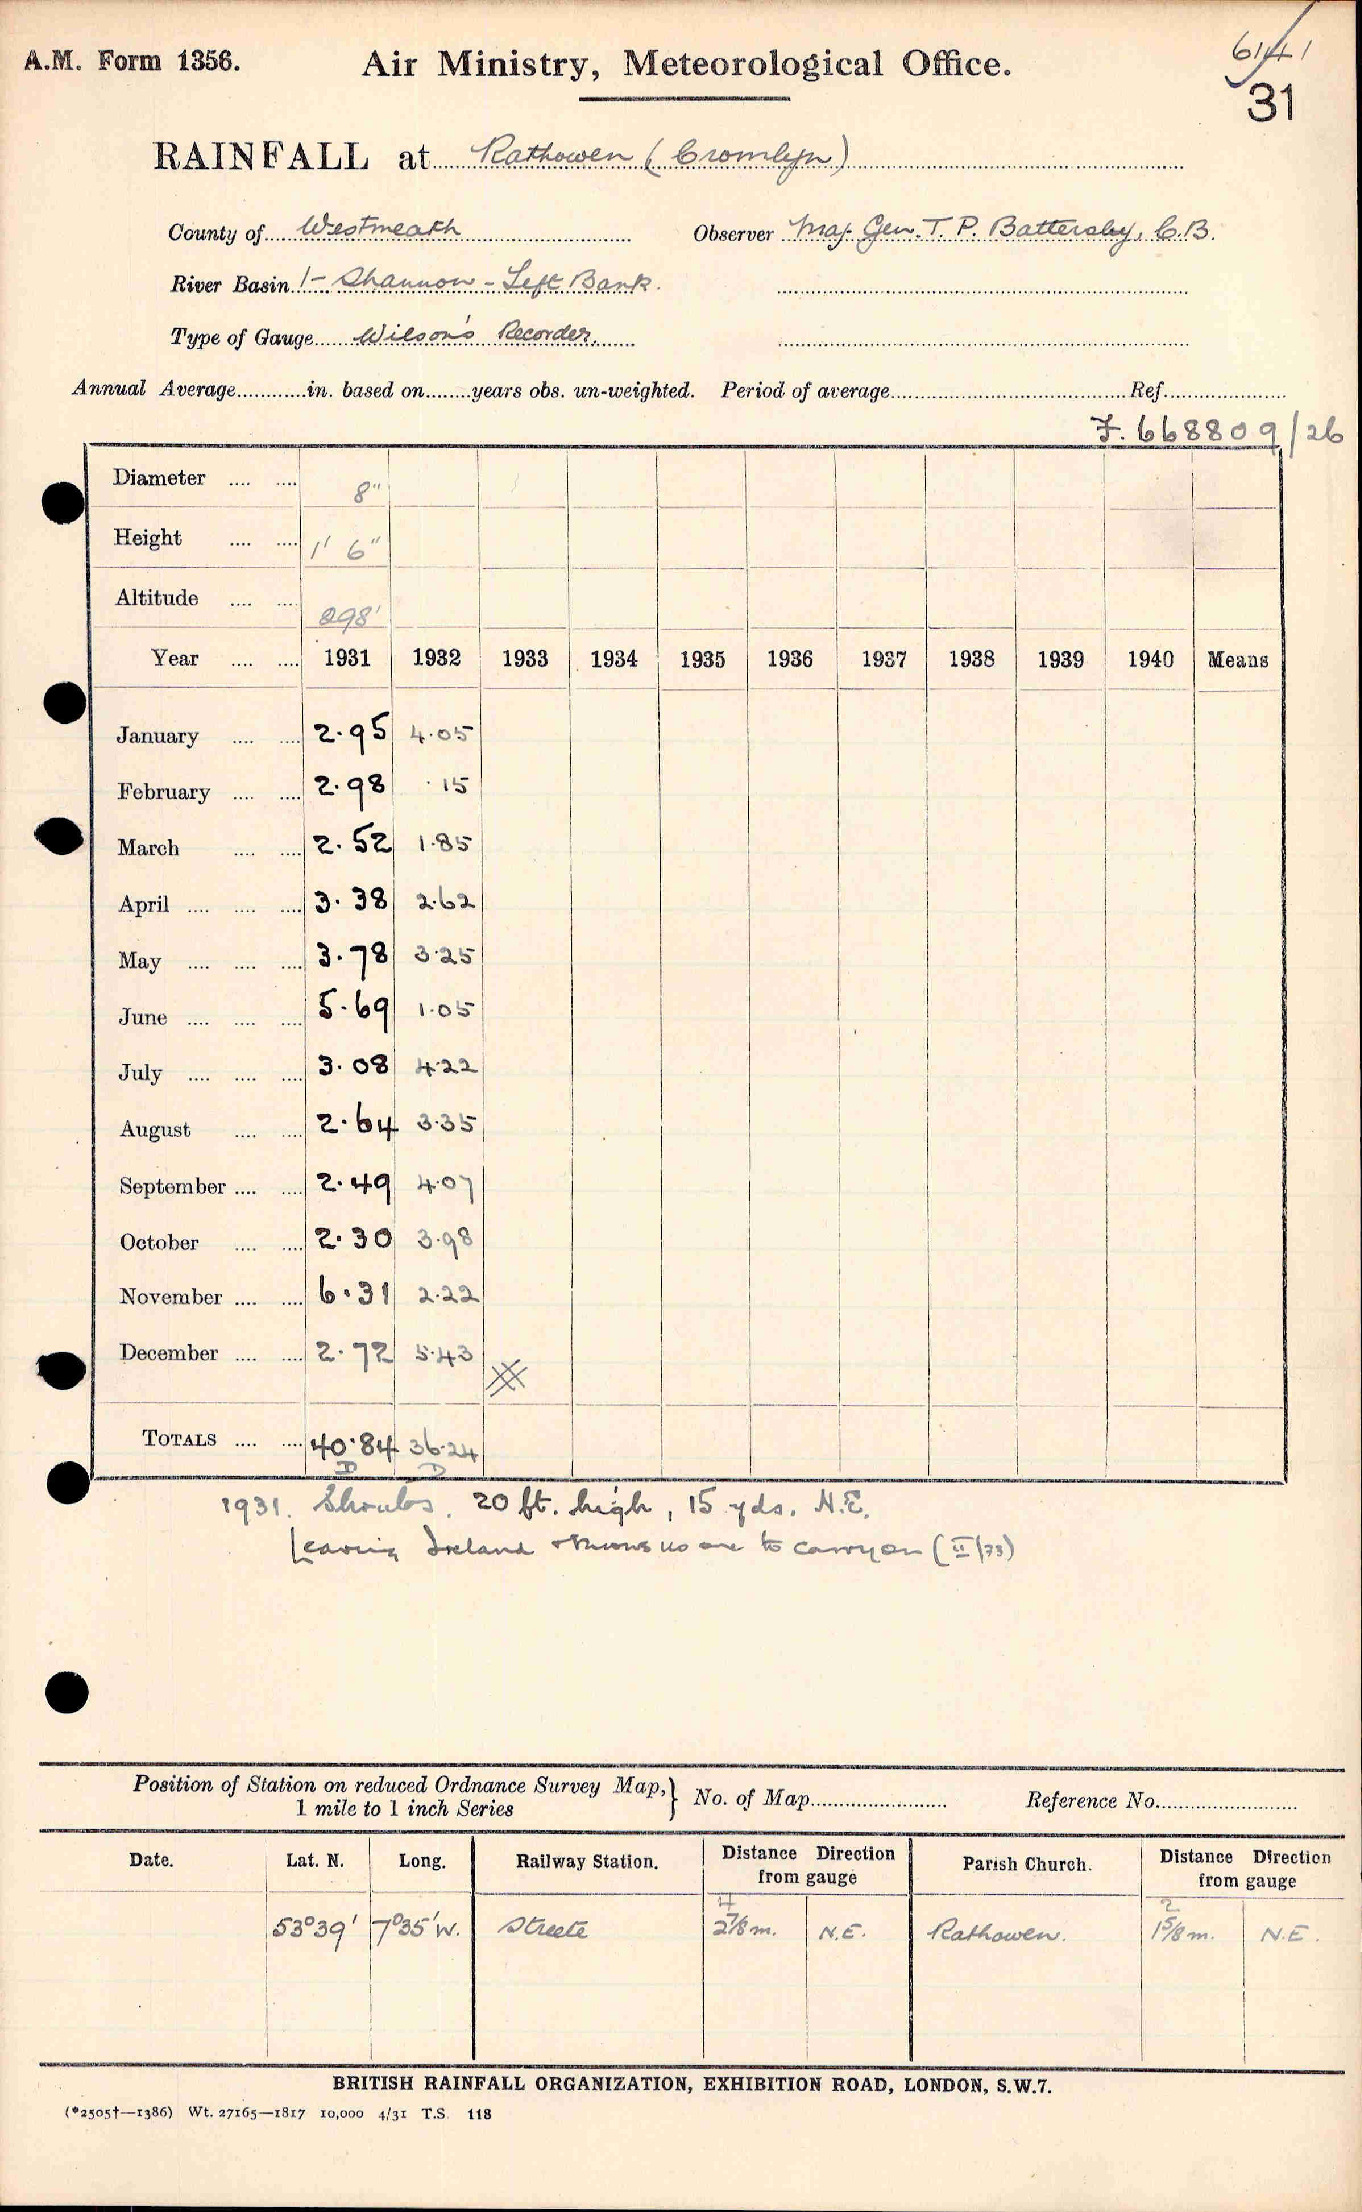 A.M. Form 1356.
Air Ministry, Meteorological Office.
6141
31
RAINFALL at Rathowen (Cromlyn)
County of Westmeath Observer Maj. Gen. T. P. Battersby, C.B.
River Basin 1- Shannon - Left Bank.
Type of Gauge Wilson's Recorder.
Annual Average............in. based on........years obs. un-weighted. Period of average..............Ref..............
F. 668809/26
Diameter .... .... 8"
Height .... .... 1' 6"
Altitude .... .... 298'
Year .... .... 1931 1932 1933 1934 1935 1936 1937 1938 1939 1940 Means
January .... .... 2.95 4.05
February .... .... 2.98 .15
March .... .... 2.52 1.85
April .... .... .... 3.38 2.62
May .... .... .... 3.78 3.25
June .... .... .... 5.69 1.05
July .... .... .... 3.08 4.22
August .... .... 2.64 3.35
September .... .... 2.49 4.07
October .... .... 2.30 3.98
November .... .... 6.31 2.22
December .... .... 2.72 5.43
TOTALS .... .... 40.84 36.24
D D
1931. Shrubs. 20 ft. high, 15 yds. N.E.
Leaving Ireland & knows no one to carry on (II/33)
Position of Station on reduced Ordnance Survey Map, } No. of Map.............. Reference No..............
1 mile to 1 inch Series
Date. Lat. N. Long. Railway Station. Distance Direction from gauge Parish Church. Distance Direction from gauge
4 2
53°39' 7°35'W. Streete 2⅞ m. N.E. Rathowen. 1⅝ m. N.E.
BRITISH RAINFALL ORGANIZATION, EXHIBITION ROAD, LONDON, S.W.7.
(*2505†—1386) Wt. 27165—1817 10,000 4/31 T.S. 118